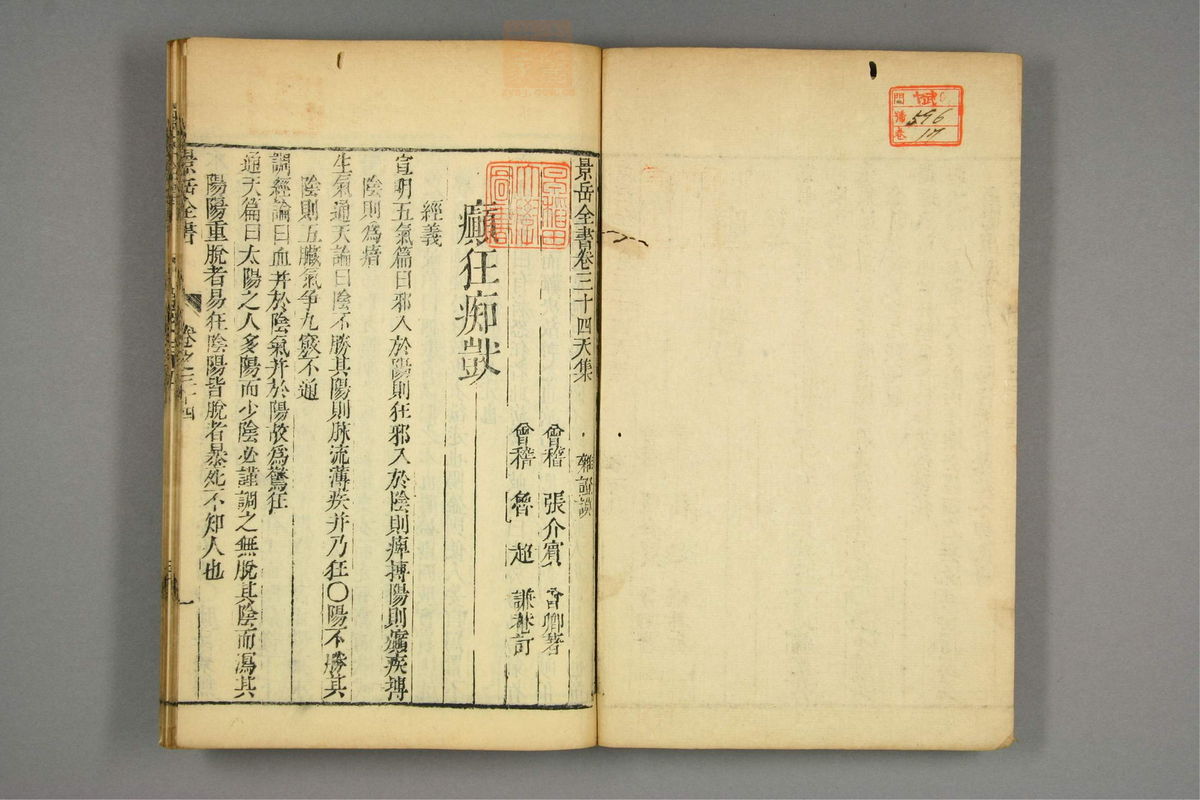 景岳全書卷三十四天集 雜證謨
會稽 張介賓 會卿著
會稽 魯 超 謙菴訂
癲狂痴獃
經義
宣明五氣篇曰邪入於陽則狂邪入於陰則痺搏陽則癲疾搏
陰則為瘖
生氣通天論曰陰不勝其陽則脉流薄疾并乃狂〇陽不勝其
陰則五臟氣爭九竅不通
調經論曰血并於陰氣并於陽故為驚狂
通天篇曰太陽之人多陽而少陰必謹調之無脫其陰而瀉其
陽陽重脫者易狂陰陽皆脫者暴死不知人也
景岳全書 卷之三十四
早稻田
大學
圖書
門
號 596
卷 17